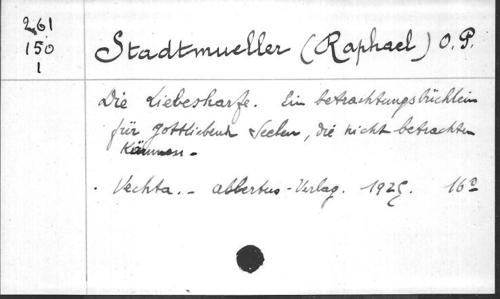 261
150
1
Stadtmueller (Raphael) O.P.
Die Liebesharfe. Ein betrachtungsbüchlein
für gottliebende Seelen, die nicht betrachten
können.
Vechta. - Albertus-Verlag. 1925. 16º